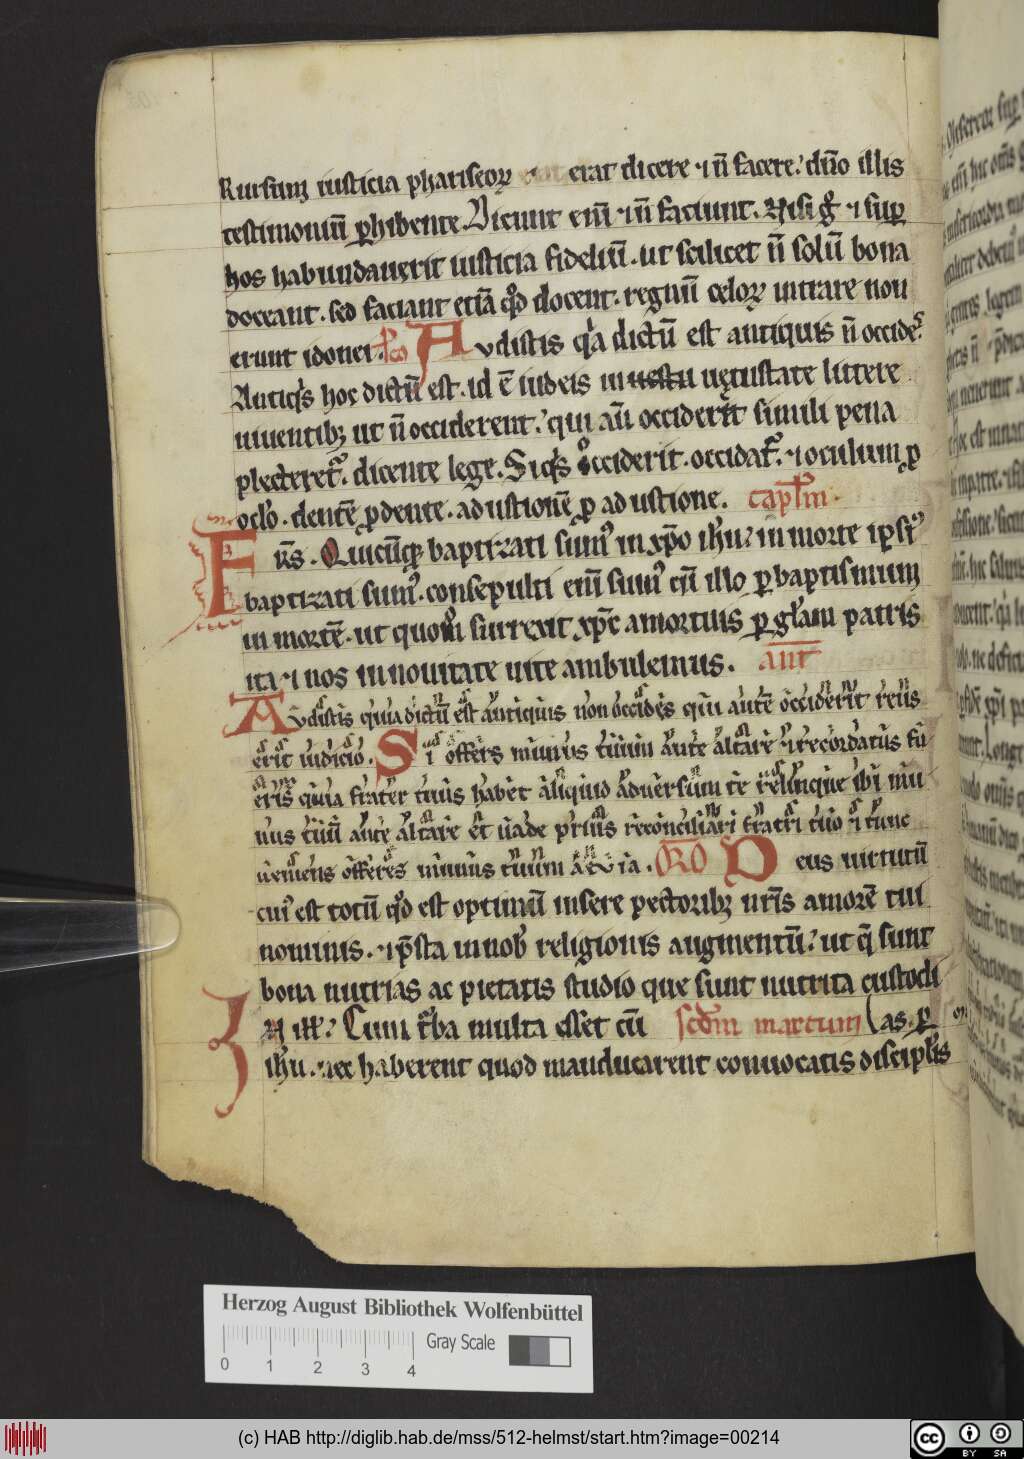 Rursum iusticia phariseoꝝ erat dicere ⁊ ñ facere. dño illis
testimoniũ ꝑhibente. Dicunt eni᷑ ⁊ ñ faciunt. Nisi gͦ ⁊ suꝑ
hos habundauerit iusticia fideliũ. ut scilicet ñ solũ bona
doceant. sed faciant eciã qd̕ docent. regnũ celoꝝ intrare non
erunt idonei. Avdistis qͥa dictũ est antiquis ñ occid̕
Antiqͥs hoc dictũ est. id ẽ iudeis in uetustate littere
uiuentibꝫ ut ñ occiderent. qui aũ occiderit simili pena
plecteret᷑. dicente lege. Siqͥs occiderit. occidat᷑. ⁊ oculum ꝓ
oclo. dentẽ ꝓ dente. adustionẽ ꝓ adustione. capl̃m
Fr̃s. Quicũqꝫ baptizati sumꝰ in xp̃o ih̃u. in morte ipsiꝰ
baptizati sumꝰ. consepulti eni᷑ sumꝰ cũ illo ꝑ baptismum
in mortẽ. ut quomͦ surrexit xp̃c a mortuis ꝑ gl̃am patris
ita ⁊ nos in nouitate uite ambulemus. ant̃
Avdistis quia dictũ est antiquis non occides qui autẽ occiderit reus
erit iudicio. Si offers munus tuum ante altare ⁊ recordatus fu
eris quia frater tuus habet aliquid aduersum te relinque ibi mu
nus tuũ ante altare et uade prius reconciliari fratri tuo ⁊ tunc
ueniens offeres munus tuum aeuia. OR̃O Deus uirtutũ
cuiꝰ est totũ qd̕ est optimũ insere pectoribꝫ nr̃is amorẽ tui
nominis. ⁊ p̃sta in nob̕ religionis augmentũ. ut q̃ sunt
bona nutrias ac pietatis studio que sunt nutrita custodi
Cum t̃ba multa esset cũ scd̃m marcum as. ꝑ
ih̃u. nec haberent quod manducarent conuocatis discipl̕is
Herzog August Bibliothek Wolfenbüttel
Gray Scale
0 1 2 3 4
(c) HAB http://diglib.hab.de/mss/512-helmst/start.htm?image=00214
cc BY SA